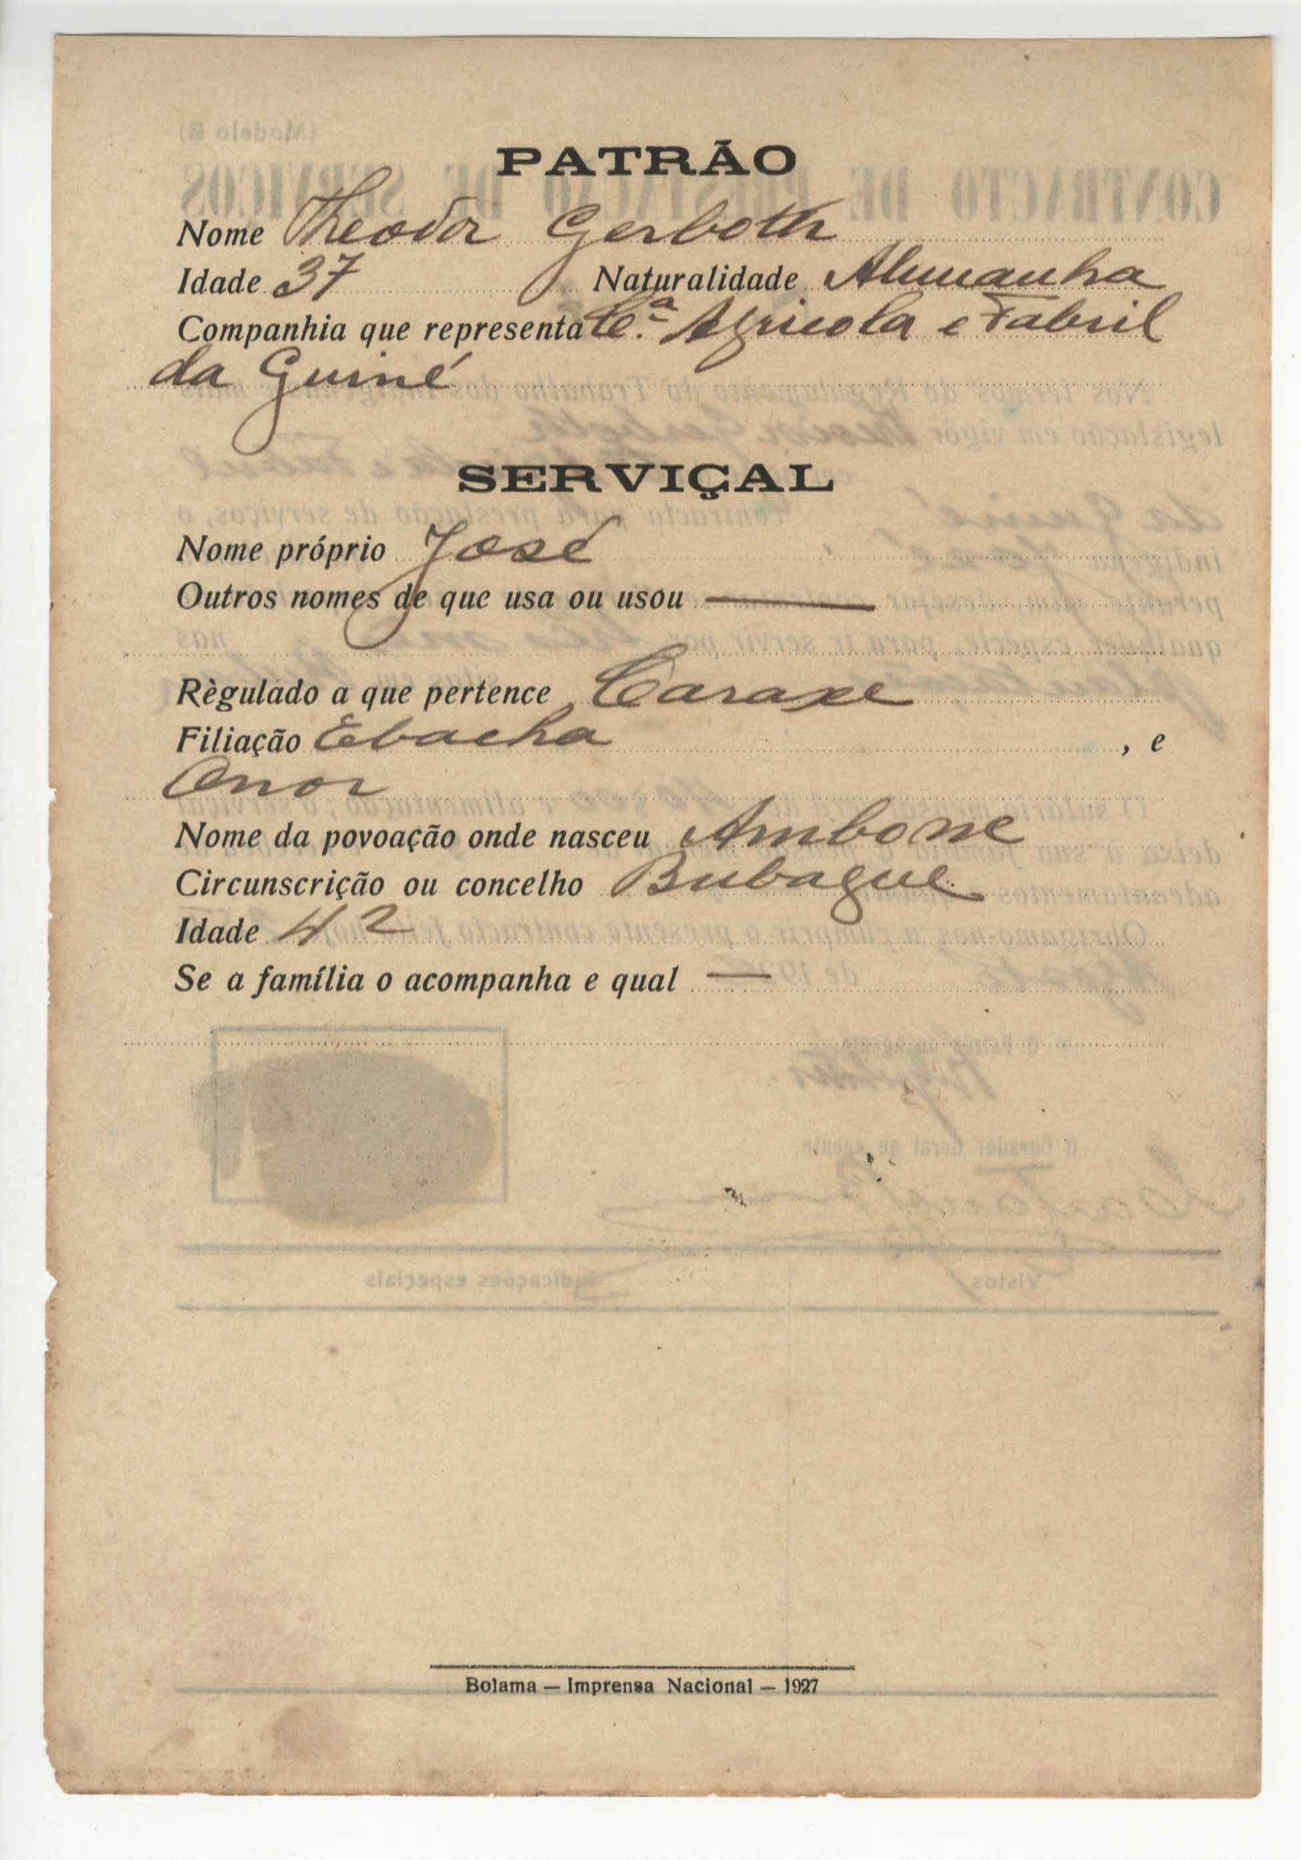 PATRÃO
Nome Theodor Gerboth
Idade 37 Naturalidade Alemanha
Companhia que representa Cª. Agricola e Fabril
da Guiné
SERVIÇAL
Nome próprio José
Outros nomes de que usa ou usou —
Règulado a que pertence Caraxe
Filiação Ebacha, e
Onor
Nome da povoação onde nasceu Ambone
Circunscrição ou concelho Bubaque
Idade 42
Se a família o acompanha e qual —
Bolama — Imprensa Nacional — 1927